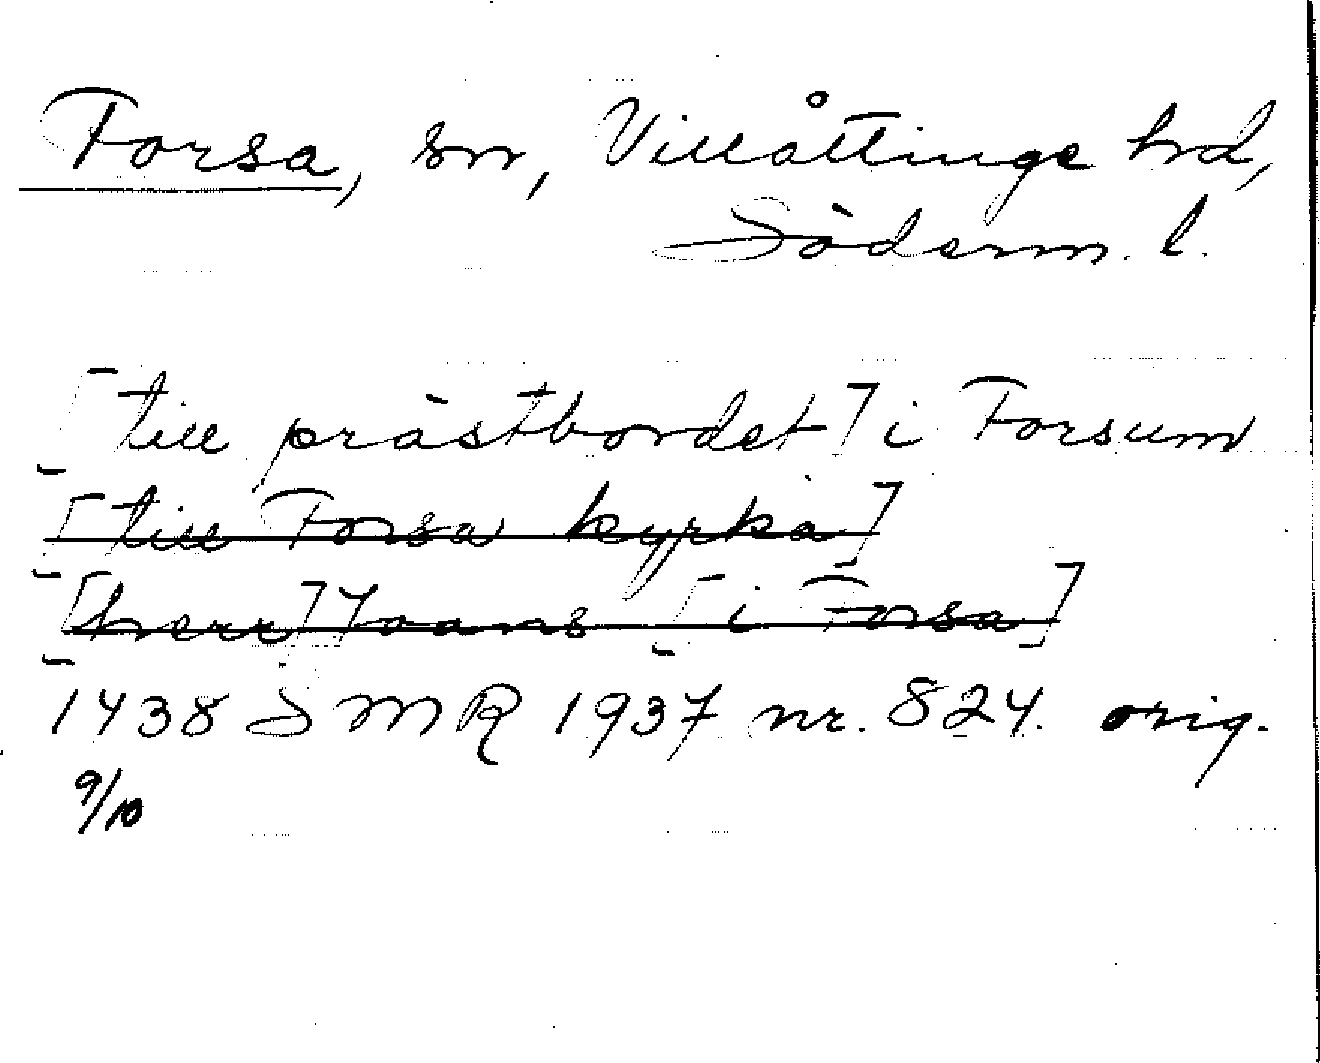 Forsa, sn, Villåttinge hd,
Söderm. l.
[till prästbordet] i Forsum
[till Forsa kyrka]
[herr] Joans [i Forsa]
1438 SMR 1937 nr. 824. orig.
9/10